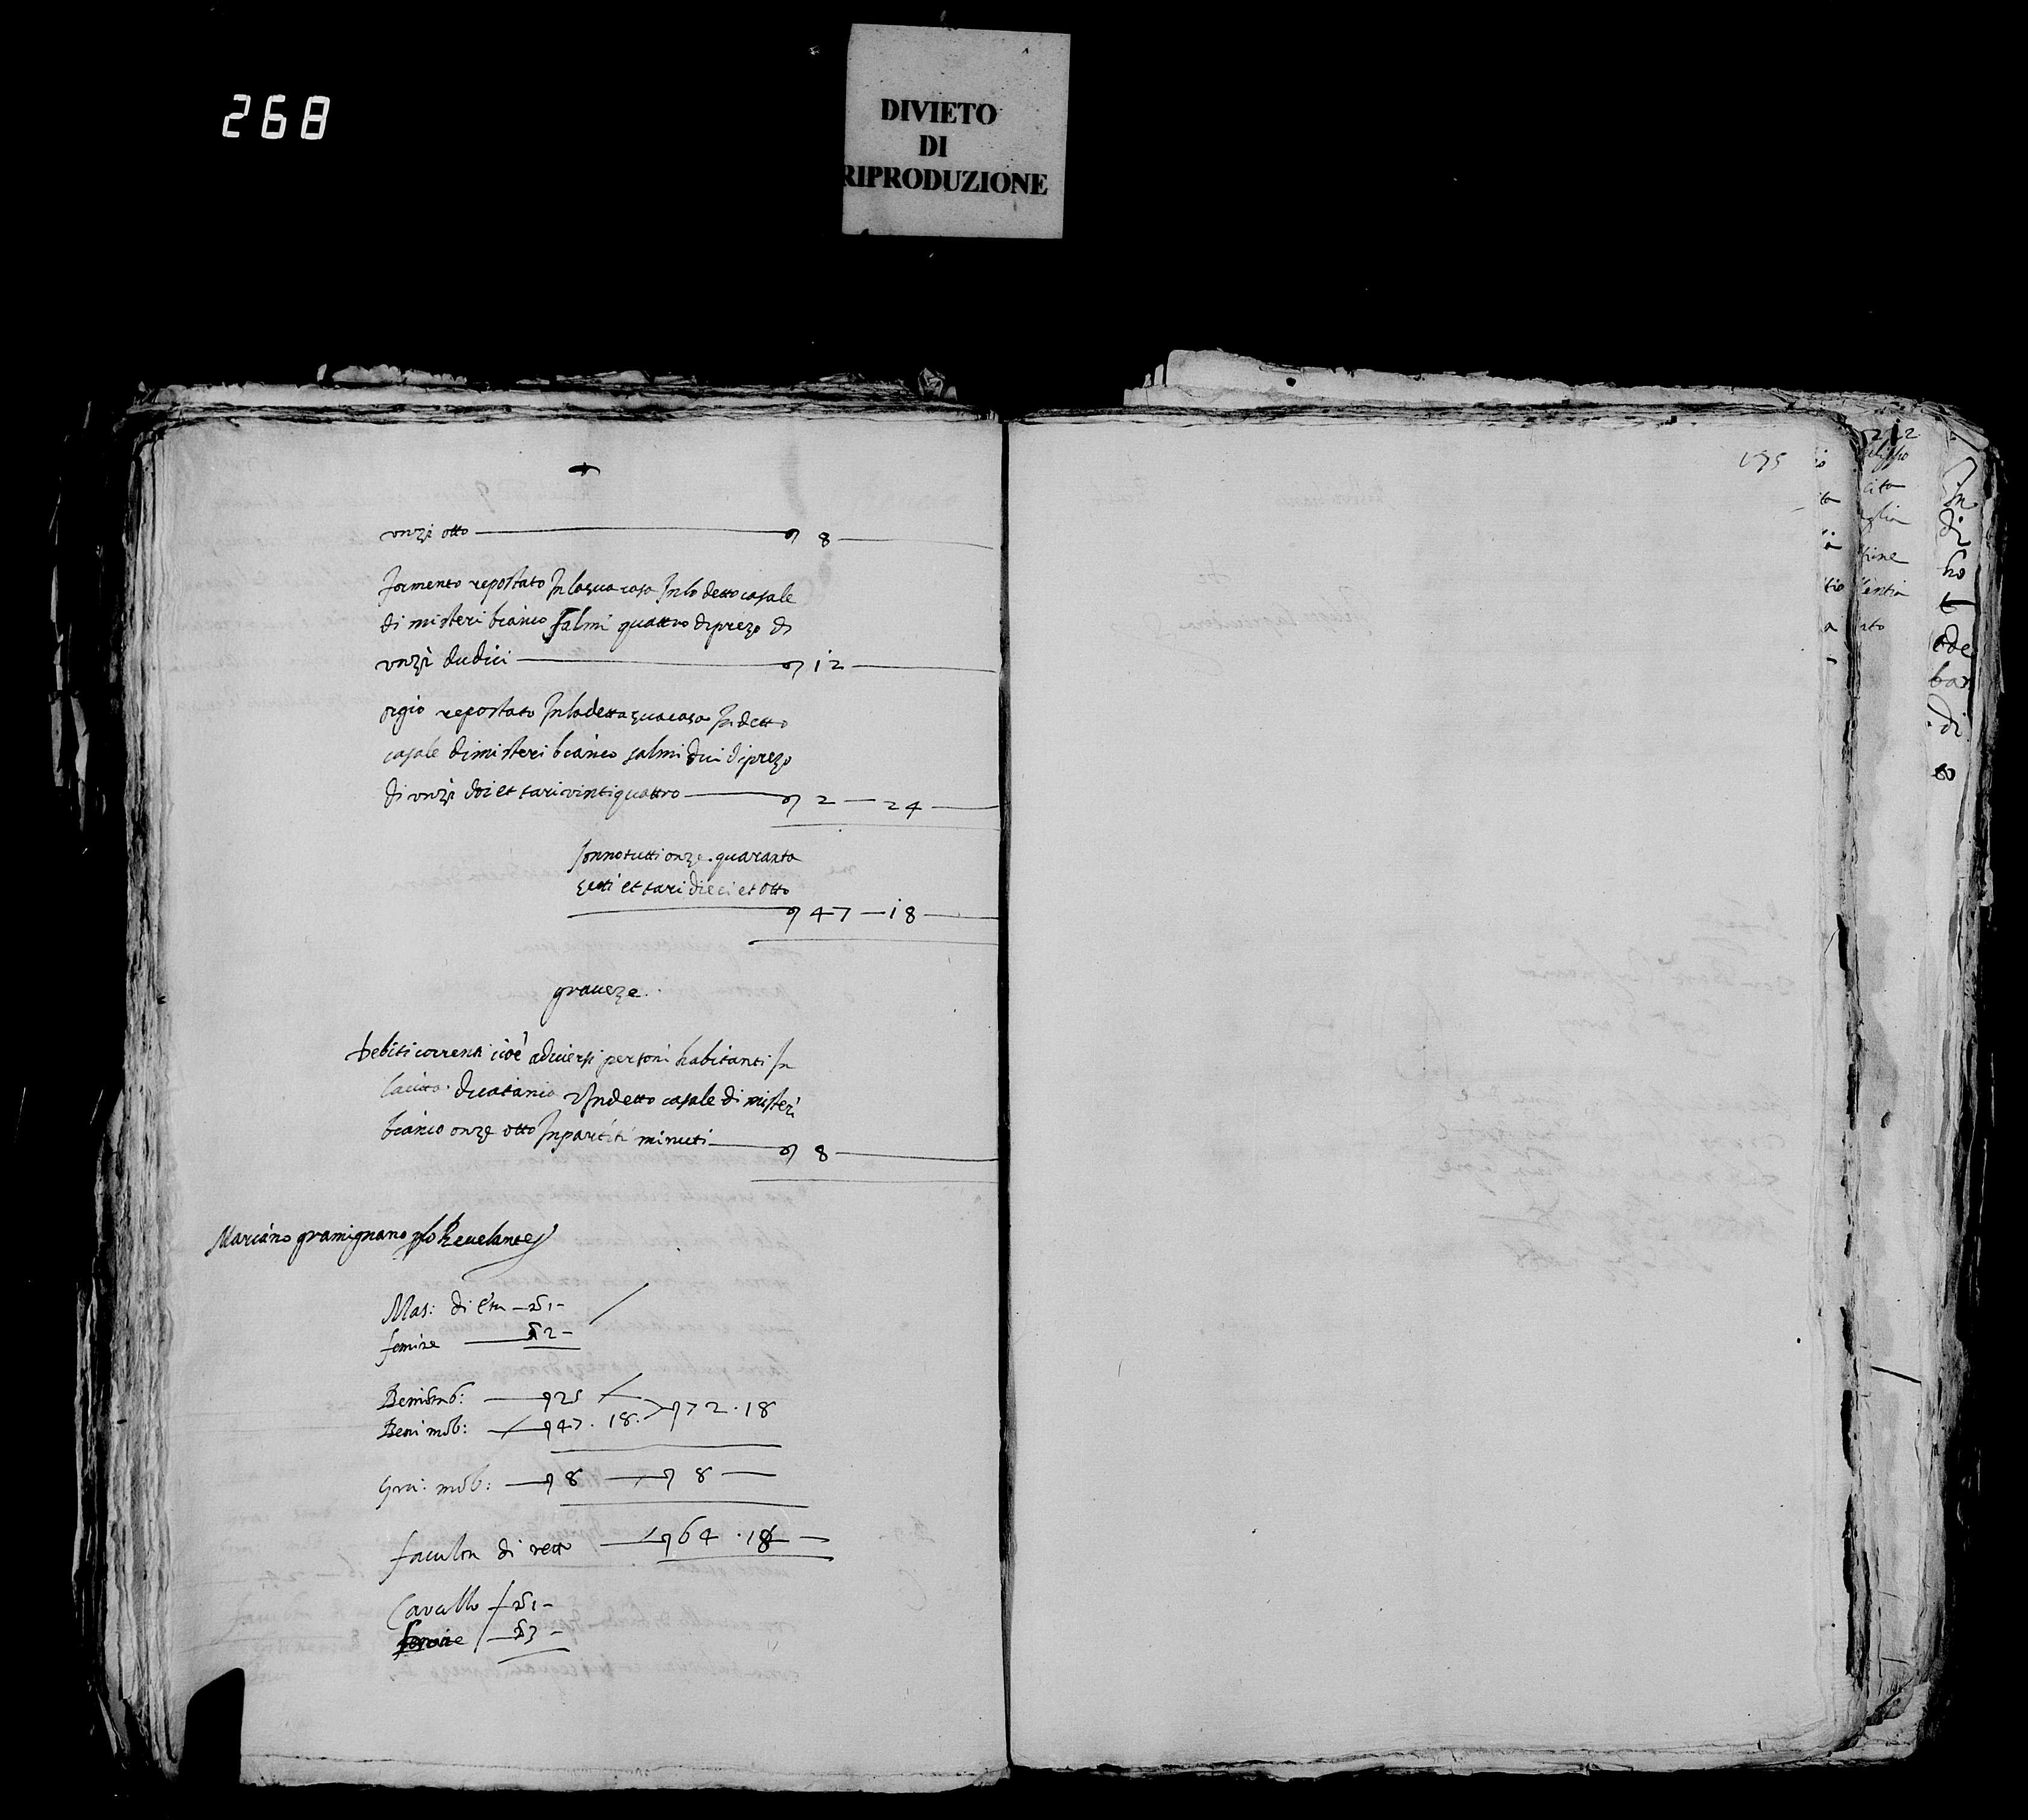 268
DIVIETO
DI
RIPRODUZIONE
unzi otto 8
formento repostato In la sua casa In lo detto casale
di misteri bianco salmi quattro di prezo di
unzi dudici 12
orgio repostato In la detta sua casa In detto
casale di misteri bianco salmi dui di prezo
di unzi doi et tari vintiquattro 2 — 24
sonno tutti onze quaranta
setti et tari dieci et otto
47 — 18
graveze
Debiti correnti cioè a diversi personi habitanti In
la citta di catania In detto casale di misteri
bianco onze otto In partiti minuti 8
Mariano gramignano Revelante
Mas: di 1
femine 2
Beni 25
Beni mob: 47. 18. 72. 18
Gra: mob: 8 8
facultà di netto 64. 18
Cavallo 1
3
195
212